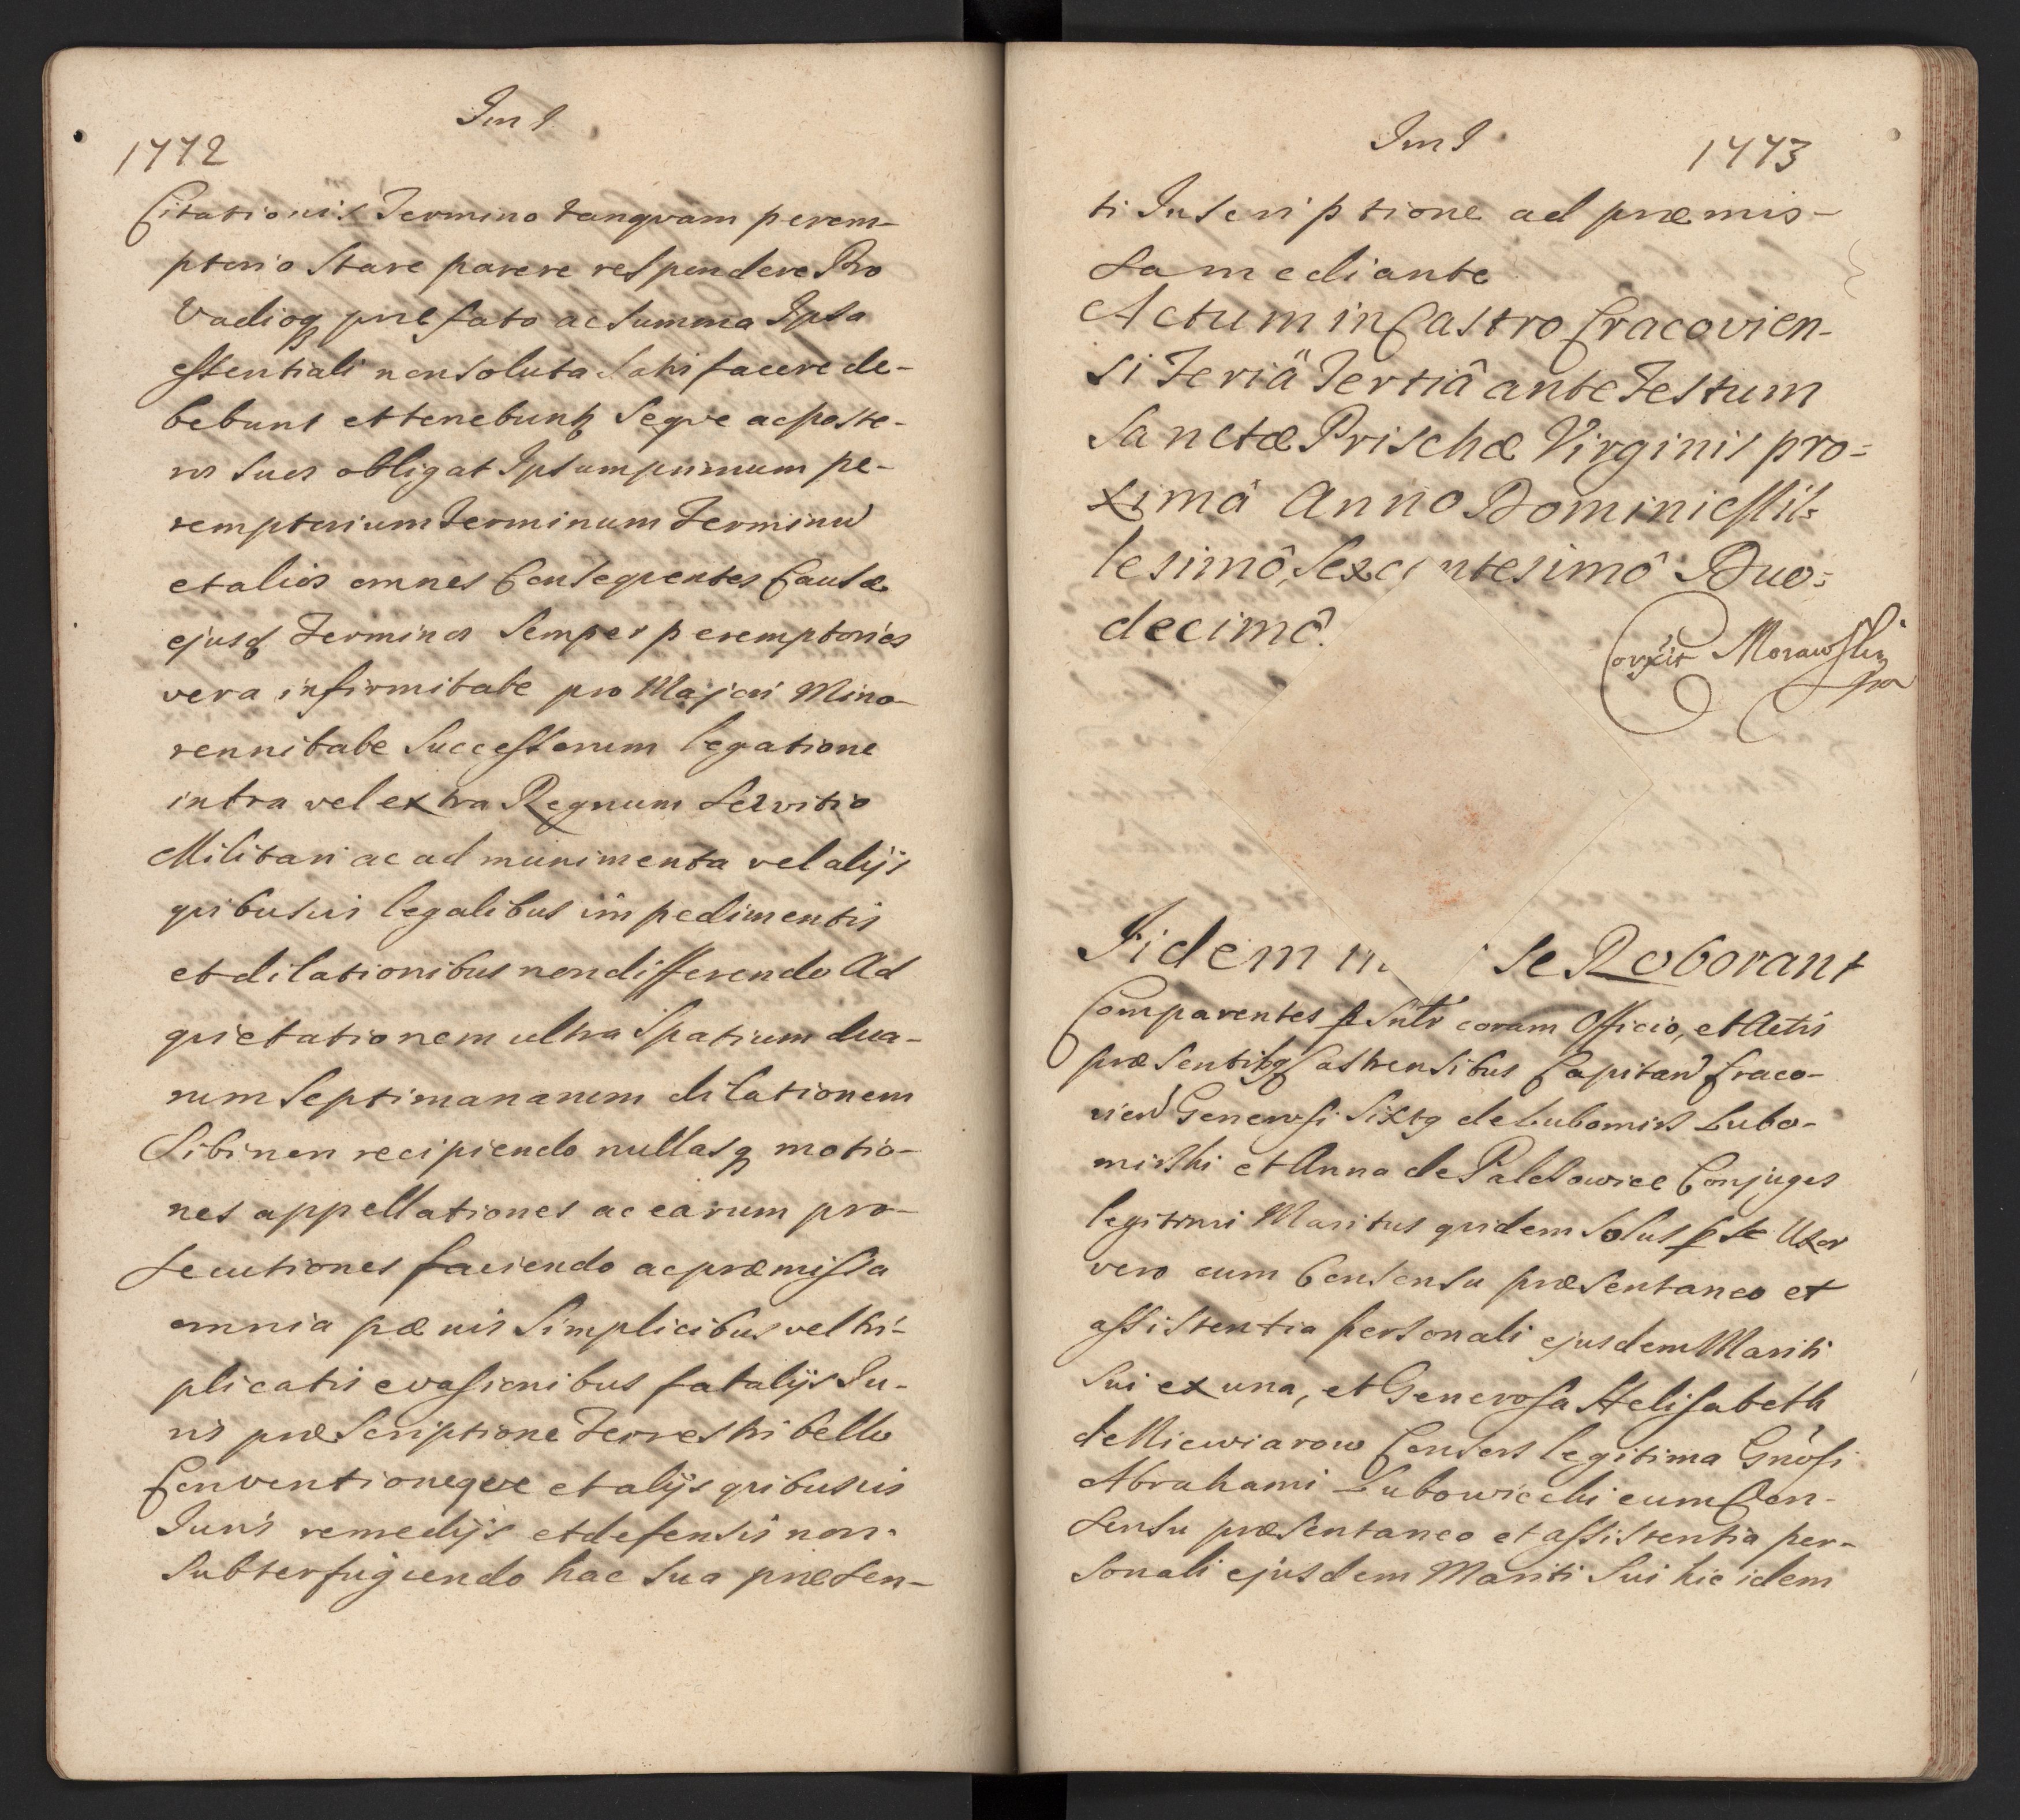 Im I
1772
Citationis Termino tanqvam perem-
ptorio Stare parere respondere Pro
Vadioq præfato ac Summa Ipsa
essentiali non soluta Satisfacere de-
bebunt et tenebuntr Seqve ac poste-
ros Suos obligat Ipsum primum pe-
remptorium Terminum Terminu
et alios omnes Consequentes Causæ
ejusq Terminos Semper peremptorios
vera infirmitate pro Majori Mino-
rennitate Successorum legatione
intra vel extra Regnum Servitio
Militari ac ad munimenta vel alijs
quibusvis legalibus impedimentis
et dilationibus non differendo Ad
quietationem ultra Spatium dua-
rum Septimanarum dilationem
Sibi non recipiendo nullasq motio-
nes appellationes ac earum pro-
secutiones faciendo ac præmissa
omnia pænis Simplicibus vel tri-
plicatis evasionibus fatalijs Ju-
ris præscriptione Terrestri bello
Conventioneqve et alijs quibusvis
Juris remedijs et defensis non
Subterfugiendo hac Sua præsen-
Im I
1773
ti Inscriptione ad præmis-
sa mediante
Actum in Castro Cracovien-
si Feriâ Tertiâ ante Festum
Sanctæ Prischæ Virginis pro=
ximâ Anno Domini Mil=
lesimô Sexc ntesimô Duo=
decimô.
Corxit Morawski
Fidem se Roborant
Comparentes p Sntr coram Officio, et Actis
præsentibq Castrensibus Capitan Craco-
vien Generosi Sixtq de Lubomirz Lubo-
mirski et Anna de Palcsowice Conjuges
legitimi Maritus quidem Solus p se Uxor
vero cum Consensu præsentaneo et
assistentia personali ejusdem Mariti
Sui ex una, et Generosa Helisabeth
de Niewiarow Consors legitima Gnosi
Abrahami Lubowiecki cum Con-
sensu præsentaneo et assistentia per-
sonali ejusdem Mariti Sui hic idem